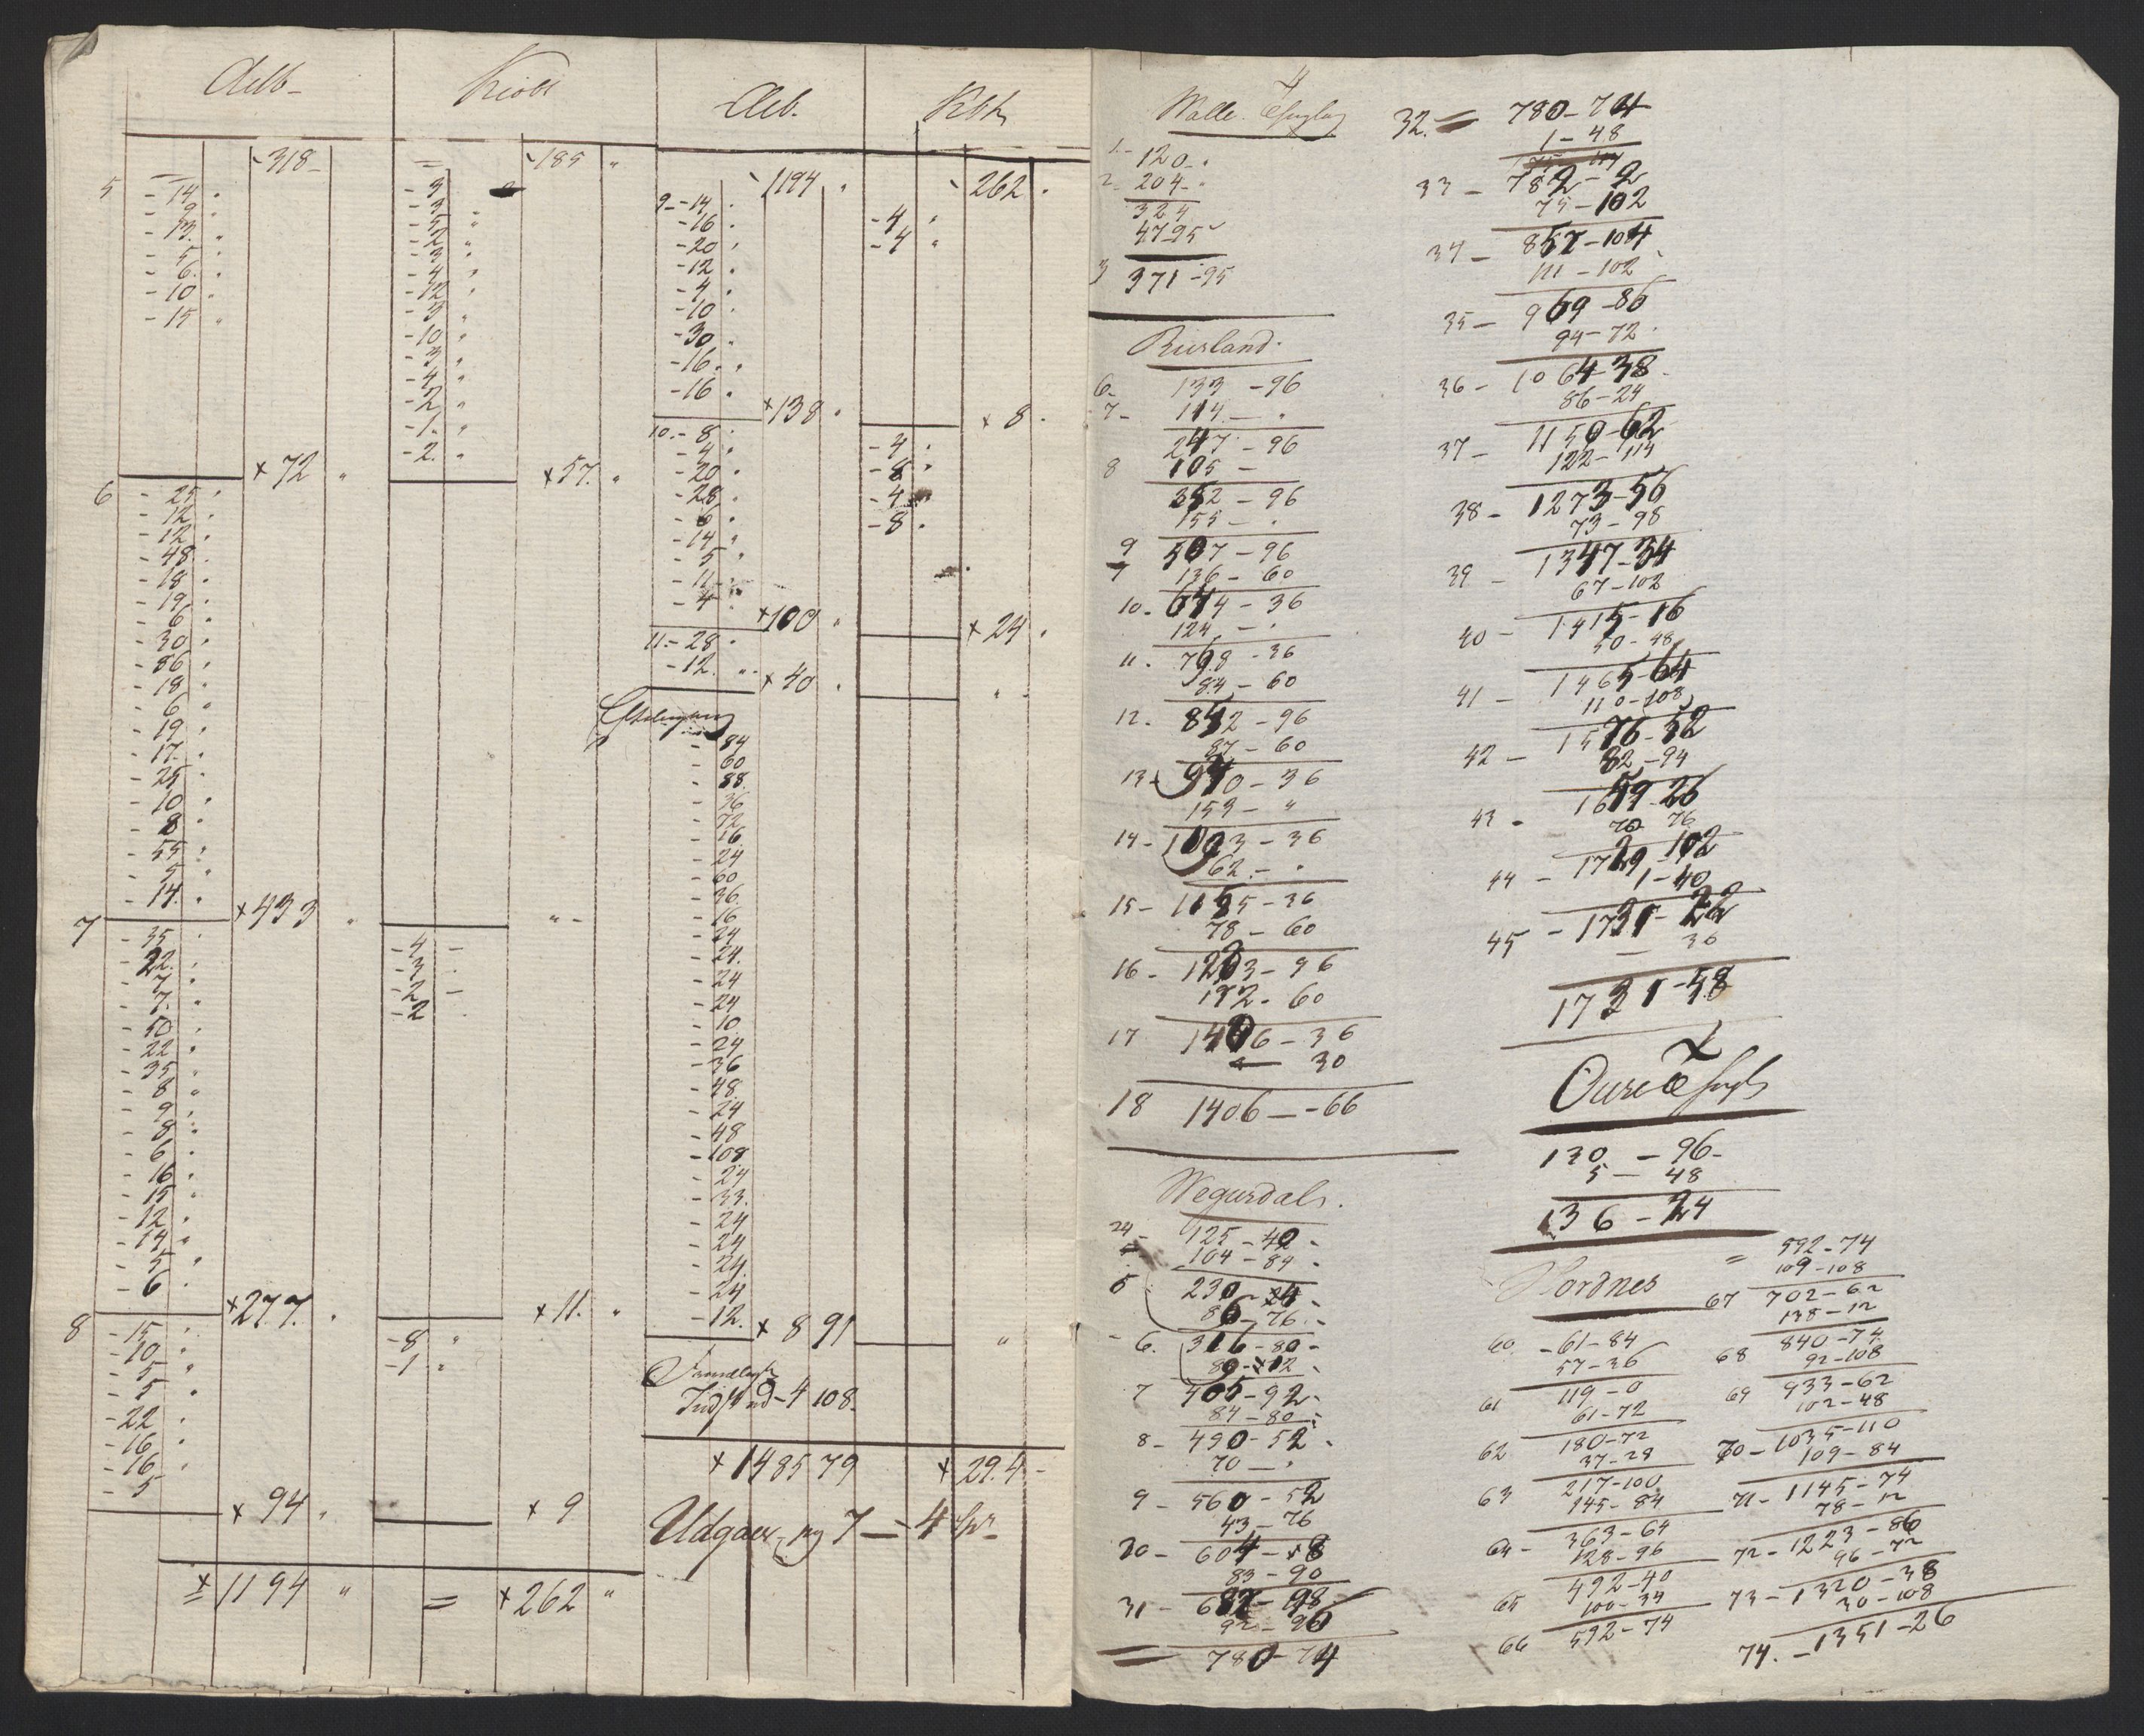 Aalb-
- 318 -
5 - 14 "
- 9 "
- 13 "
- 5 "
- 6 "
- 10 "
- 15 "
x 72 "
6 - 25 "
- 12 "
- 12 "
- 48 "
- 18 "
- 19 "
- 6 "
- 30 "
- 86 "
- 18 "
- 6 "
- 19 "
- 17 "
- 25 "
- 10 "
- 8 "
- 55 "
- 5 "
- 14 "
x 433 "
7 - 35 "
- 22 "
- 7 "
- 7 "
- 50 "
- 22 "
- 35 "
- 8 "
- 9 "
- 8 "
- 6 "
- 16 "
- 15 "
- 12 "
- 14 "
- 5 "
- 6 "
x 277 "
8 - 15 "
- 10 "
- 5 "
- 5 "
- 22 "
- 16 "
- 16 "
- 5
x 94 "
x 1194 "
Kiobh
- 185 "
- 3
- 3 "
- 5 "
- 2 "
- 3 "
- 4 "
- 12 "
- 3 "
- 10 "
- 3 "
- 4 "
- 2 "
- 1 "
- 2 "
x 57 "
" -
- 4 -
- 3 -
- 2 -
- 2 -
x 11 "
- 8 "
- 1 "
x 9
= x 262 "
Alb.
- 1194 "
9 - 14 "
- 16 "
- 20 "
- 12 "
- 4 "
- 10 "
- 30 "
- 16 "
- 16 "
x 138 "
10 - 8 "
- 4 "
- 20 "
- 28 "
- 6 "
- 14 "
- 5 "
- 11 "
- 4 "
x 100 "
11 - 28 "
- 12 "
x 40 "
- 84
- 60
- 88
- 36
- 72
- 16
- 24
- 60
- 36
- 16
- 24
- 24
- 24
- 24
- 10
- 24
- 36
- 48
- 24
- 48
- 108
- 24
- 33
- 24
- 24
- 24
- 24
- 12
x 8 91
- 4 108
x 1485 79
Kbh
- 262 "
- 4 "
- 4 "
x 8 -
- 4 "
- 8 "
- 4 "
- 8 "
x 24 "
" -
"
x 29.4 -
Udgaer pag 7 - - 4 Spr
4
Walle
1 - 120 - "
2 - 204 - "
324
47-95
3 371 - 95
Riisland.
6 - 133 - 96
7 - 114 - "
247 - 96
8 105 -
352 - 96
155 - "
9 507 - 96
136 - 60
10 - 644 - 36
124 - "
11 - 768 - 36
84 - 60
12 - 852 - 96
87 - 60
13 - 940 - 36
153 - "
14 - 1093 - 36
62 - "
15 - 1155 - 36
78 - 60
16 - 1233 - 96
172 - 60
17 1406 - 36
- 30
18 1406 - - 66
Wegusdals.
24 - 125 - 40 -
104 - 84 -
5 230 - 4 -
86 - 76 -
6. 316 - 80 -
89 - 12
7 405 - 92 -
84 - 80 -
8 - 490 - 52 -
70 - "
9 - 560 - 52
43 - 76
30 - 604 - 8
83 - 90
31 - 687 - 98
92 - 96
780 - 74
32. = 780 - 74
1 - 48
33 - 782 - 2
75 - 102
34 - 857 - 104
111 - 102
35 - 969 - 86
94 - 72
36 - 1064 - 38
86 - 24
37 - 1150 - 62
122 - 114
38 - 1273 - 56
73 - 98
39 - 1347 - 34
67 - 102
40 - 1415 - 16
50 - 48
41 - 1465 - 64
110 - 108
42 - 1576 - 52
82 - 94
43 - 1659 - 26
70 76
44 - 1729 - 102
1 - 40
45 - 1731 - 22
- 36
1731 - 58
130 - 96 -
5 - 48
136 - 24
Hordnes
60 - 61 - 84
57 - 36
61 119 - 0
61 - 72
62 180 - 72
37 - 28
63 217 - 100
145 - 84
64 - 363 - 64
128 - 96
65 492 - 40
100 - 34
66 592 - 74
= 592 - 74
109 - 108
67 702 - 62
138 - 12
68 840 - 74
92 - 108
69 933 - 62
102 - 48
70 - 1035 - 110
109 - 84
71 - 1145 - 74
78 - 12
72 - 1223 - 86
96 - 72
73 - 1320 - 38
30 - 108
74. - 1351 - 26